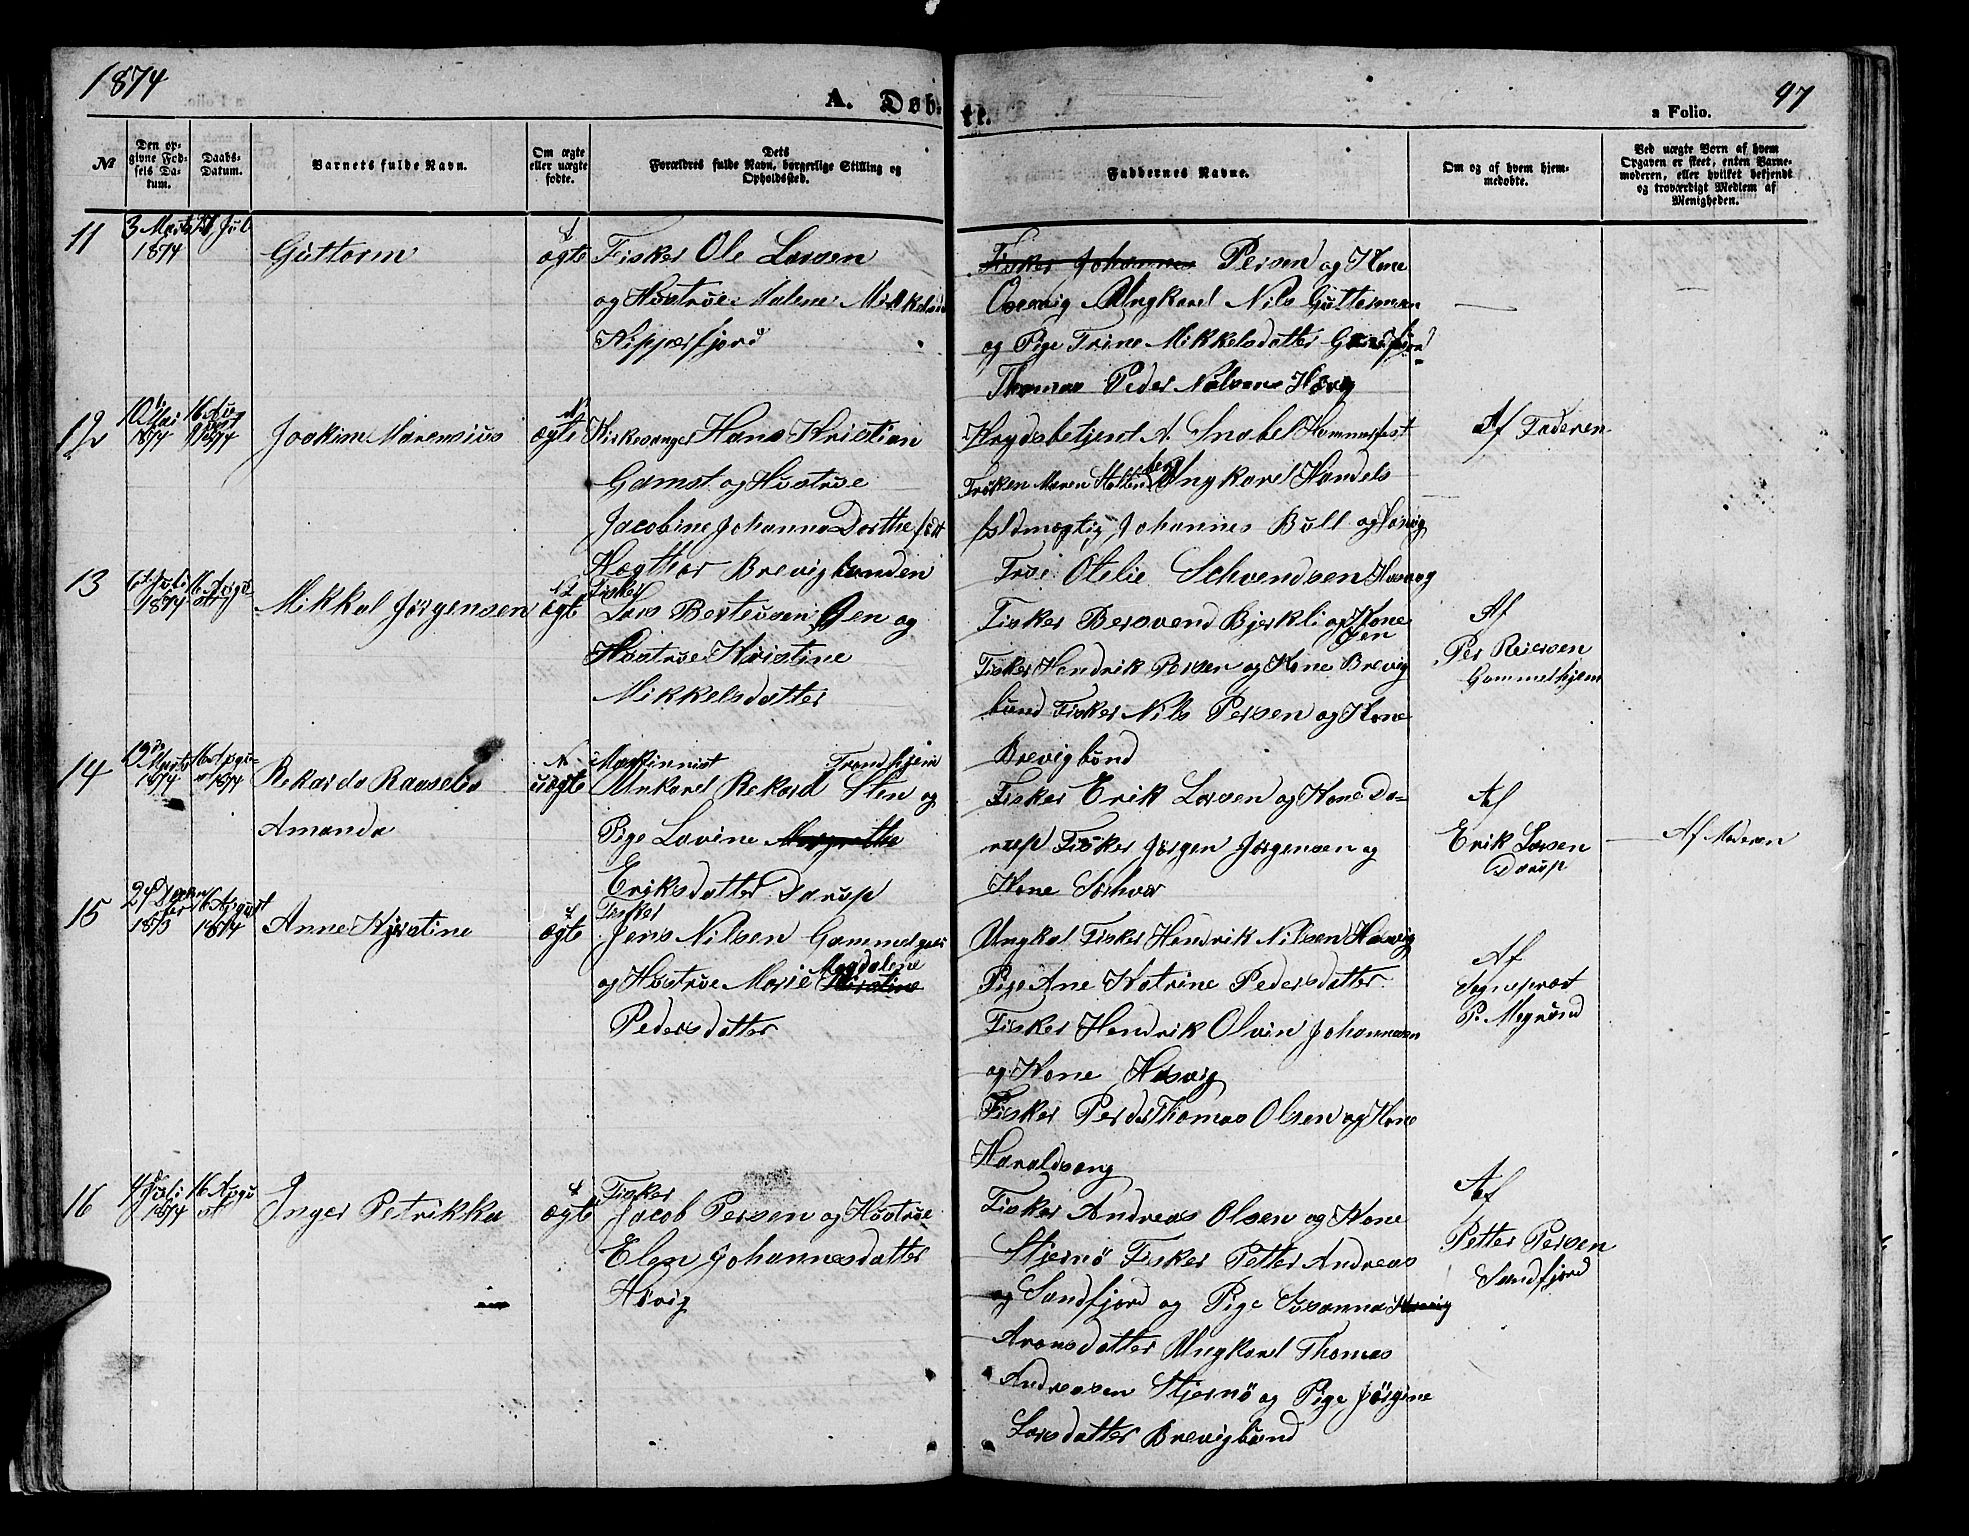 1874
A. Døb-
te.
a Folio.
97
№
Den op-
givne Fød-
sels Da-
tum.
Daabs-
Datum.
Barnets fulde Navn.
Om ægte
eller uægte
fødte.
Dets
Forældres fulde Navn, borgerlige Stilling og
Opholdssted.
Faddernes Navne.
Om og af hvem hjem-
medøbte.
Ved uægte Børn af hvem
Opgaven er skeet, enten Barne-
moderen, eller hvilket bekjendt
og troværdigt Medlem af
Menigheden.
11
3 Marts
1874
Juli
Guttorm
ægte
Fisker Ole Larsen
og Hustrue Malene
Fisker Johannes Persen og Kone
Ungkarel Nils Guttorman
og Pige Trine Mikkelsdatter
Thomas Peder Nilsens Hasvig
12
10 Mai
1874
16 Aug
1874
Joakim Marensius
ægte
Kirkesanger Hans Kristian
Gamst og Hustrue
Jacobine Johanna Dorthe født
Hægthor Brevigbunden
Krydsbetjent A. Snabel Hammerfest
Frøken Maren Ungkarel Handels
fuldmægtig Johannes Bull og Hasvig
Frue Otelie Schvendsen Hasvog
Af Faderen
13
6 Juli
1874
16 Augu-
st
Mikkal Jørgensen
ægte
Fisker
Lars Berteusen Gen og
Hustrue Kristine
Mikkelsdatter
Fisker Bersvend Bjerkli og Kone
Gen
Fisker Hendrik Persen og Kone Brevig
bund Fisker Nils Persen og Kone
Brevigbund
Af
Per Reiersen
Gammelhjem
14
13de Marts
1874
16 Augu-
st 1874
Rekarda Raaselia
Amanda
uægte
Maskinnist Trondhjem
Unkarel Rekard Sten og
Pige Lavine Margrethe
Eriksdatter Darup
Fisker Erik Larsen og Kone Da-
rup Fisker Jørgen Jørgensen og
Kone Sørhver
Af
Erik Larsen
Darup
Af Moderen
15
24 Decem
ber
1873
16 August
1874
Anne Kjrstine
ægte
Fisker
Jens Nilsen
og Hustrue Marie Magdalene
Kirstine
Pedersdatter
Ungkal Fisker Hendrik Nilsen Hasvig
Pige Ane Katrine Pedersdatter
Fisker Hendrik Olvin Johannesen
og Kone Hasvig
Fisker Perde Thomas Olsen og Kone
Haraldseng
Af
Sogneprest
P. Mygrund
16
4 Juli
1874
16 Augu
st
Inger Petrikka
ægte
Fisker
Jacob Persen og Hustrue
Elen Johannesdatter
Havig
Fisker Andreas Olsen og Kone
Stjernö Fisker Petter Andreas
og Sandfjord og Pige Susanna Hasvig
Aronsdatter Ungkarel Thomas
Andreasen Stjernö og Pige Jörgine
Larsdatter Brevigbund
Af
Petter Persen
Sandfjord